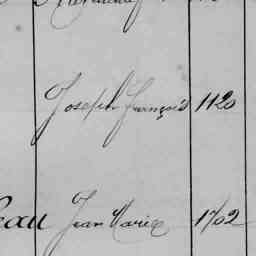 Joseph François 1120
eau Jean Marie 1702